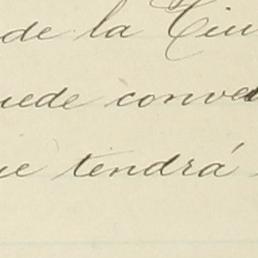 de la Ciu
uede conve
ue tendrá